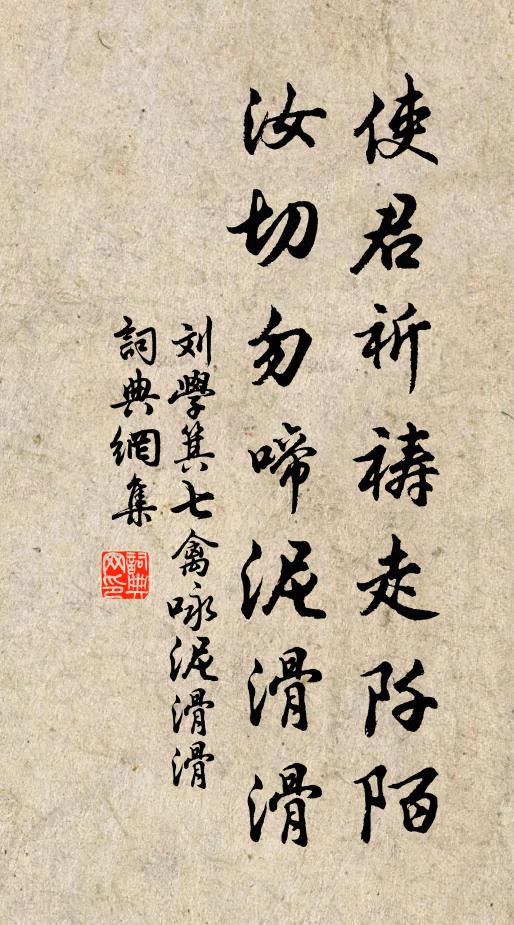 使君祈禱走阡陌
汝切勿啼泥滑滑
刘學箕七禽咏泥滑滑
詞典網集
詞典网印